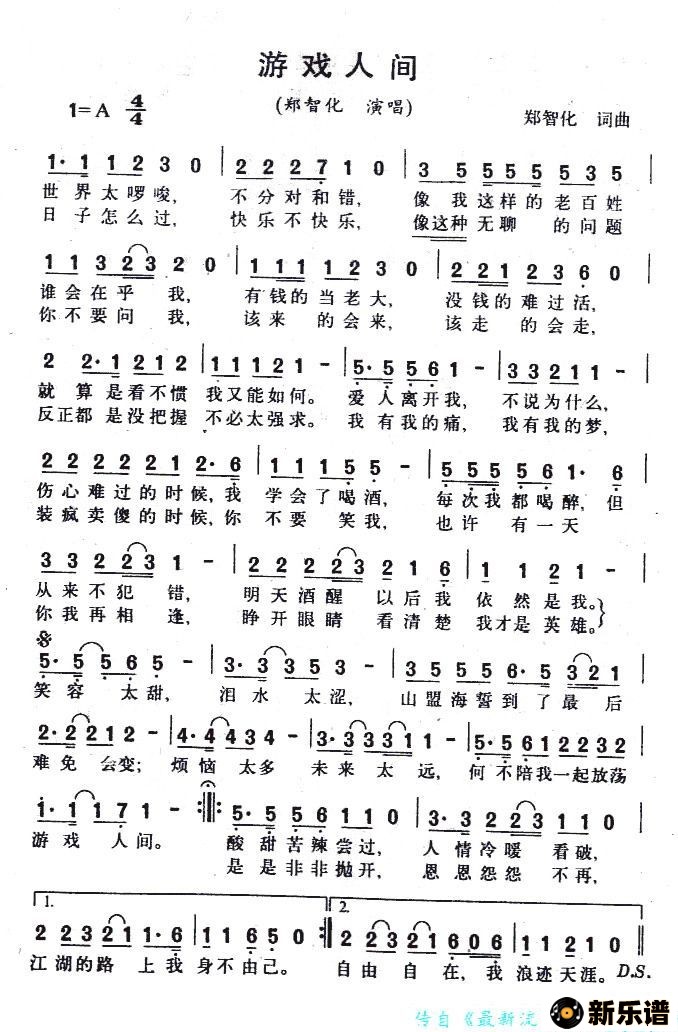 游戏人间
(郑智化 演唱)
1=A 4/4
郑智化 词曲
1· 1 1 2 3 0 | 2 2 2 7 1 0 | 3 5 5 5 5 5 3 5 |
世界太啰唆, 不分对和错, 像我这样的老百姓
日子怎么过, 快乐不快乐, 像这种无聊的问题
1 1 3 2 3 2 0 | 1 1 1 1 2 3 0 | 2 2 2 1 2 3 6 0 |
谁会在乎我, 有钱的当老大, 没钱的难过活,
你不要问我, 该来的会来, 该走的会走,
2 2· 1 2 1 2 2 | 1 1 1 2 1 - | 5· 5 5 6 1 - | 3 3 2 1 1 - |
就算是看不惯 我又能如何。 爱人离开我, 不说为什么,
反正都是没把握 不必太强求。 我有我的痛, 我有我的梦,
2 2 2 2 2 2 2· 6 | 1 1 1 5 5 - | 5 5 5 5 6 1· 6 |
伤心难过的时候,我 学会了喝酒, 每次我都喝醉,但
装疯卖傻的时候,你 不要笑我, 也许有一天
3 3 2 2 3 1 - | 2 2 2 2 3 2 1 6 | 1 1 2 1 - |
从来不犯错, 明天酒醒以后我依然是我。
你我再相逢, 睁开眼睛看清楚我才是英雄。
5· 5 5 6 5 - | 3· 3 3 5 3 - | 5 5 5 5 6· 5 3 2 1 |
笑容太甜, 泪水太涩, 山盟海誓到了最后
2· 2 2 1 2 - | 4· 4 4 3 4 - | 3· 3 3 3 1 - | 5· 5 6 1 2 2 3 2 |
难免会变; 烦恼太多 未来太远, 何不陪我一起放荡
1· 1 1 7 1 - :‖: 5· 5 5 6 1 1 0 | 3· 3 2 2 3 1 1 0 |
游戏人间。 酸甜苦辣尝过, 人情冷暖看破,
是是非非抛开, 恩恩怨怨不再,
1. 2.
2 2 3 2 1 1· 6 | 1 1 6 5 0 :‖ 2 2 3 2 1 6 0 6 | 1 1 2 1 0 ‖
江湖的路上我身不由己。 自由自在,我浪迹天涯。D.S.
传自《最新流
新乐谱